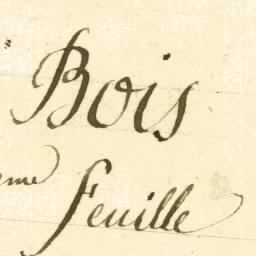 Bois
eme feuille